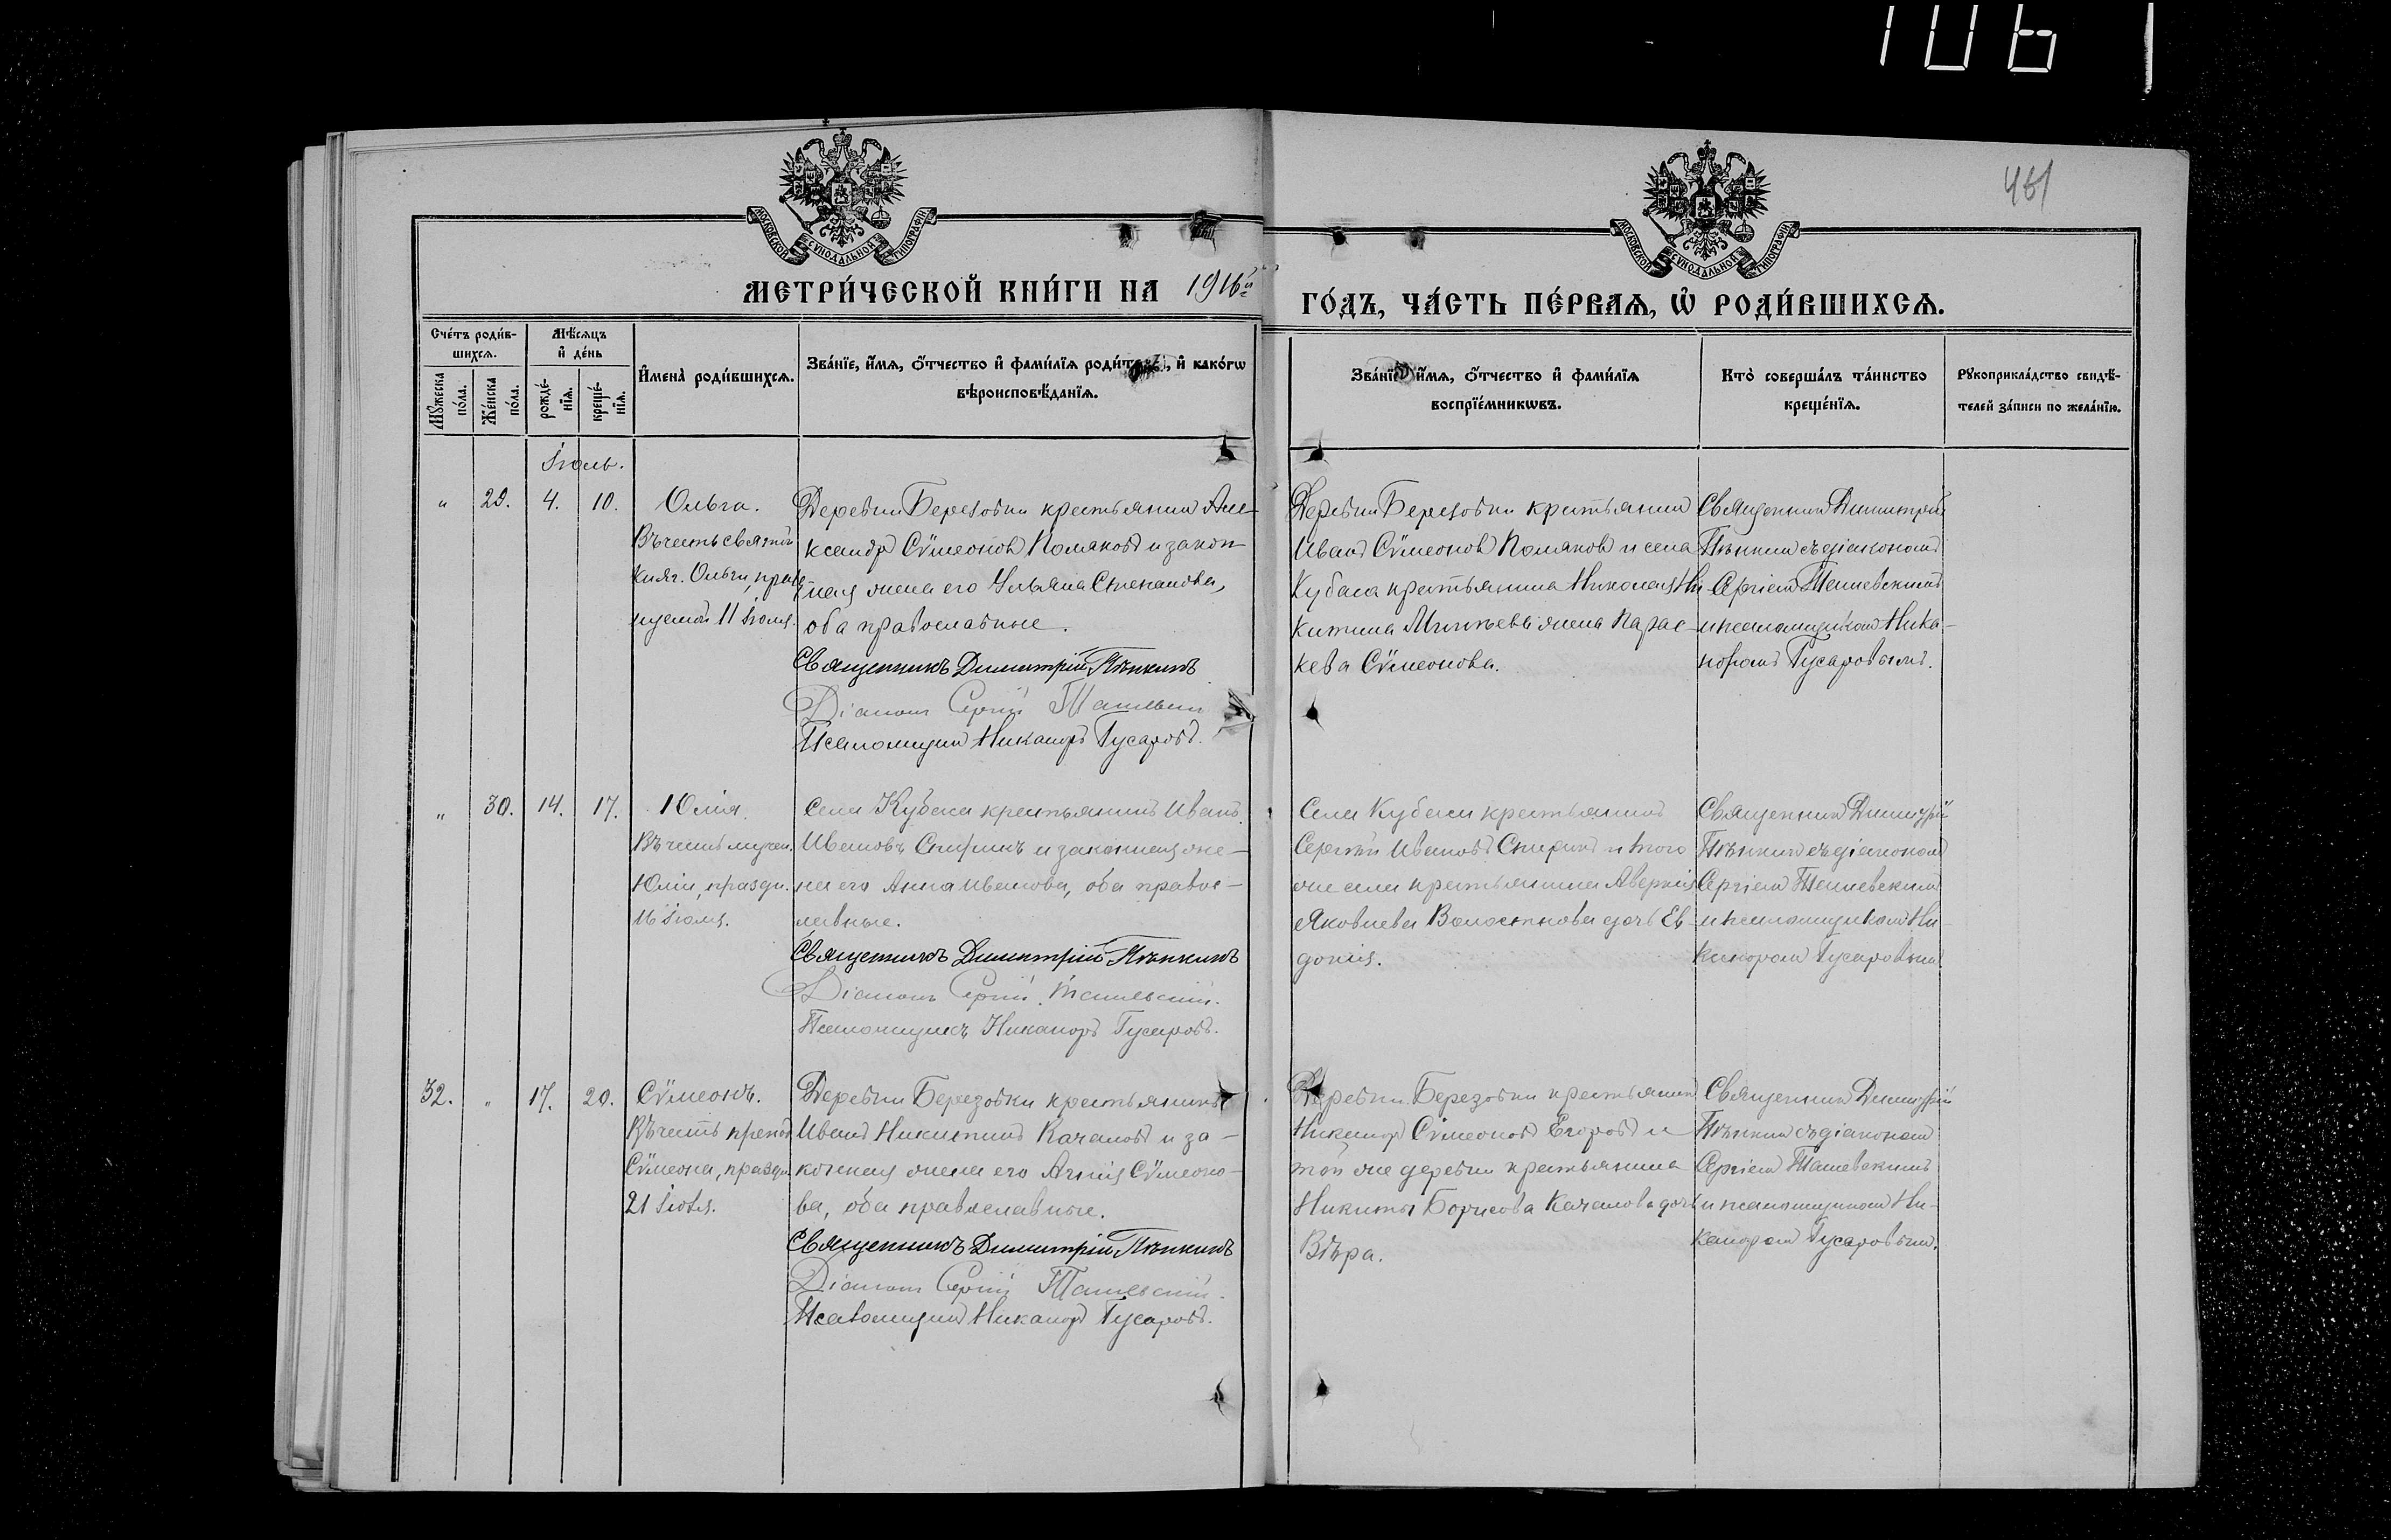 106
461
МОСКОВСКОЙ СѴНОДАЛЬНОЙ ТИПОГРАФІИ
МОСКОВСКОЙ СѴНОДАЛЬНОЙ ТИПОГРАФІИ
МЕТРИ́ЧЕСКОЙ КНИ́ГИ НА 1916й
ГО́ДЪ, ЧА́СТЬ ПЕ́РВАѦ, Ѡ҆ РОДИ́ВШИХСѦ.
Сче́тъ роди́в-
шихсѧ.
Мѣ́сѧцъ
и҆ де́нь
Мꙋ́жеска по́ла.
Же́нска по́ла.
рожде́-
нїѧ.
креще́-
нїѧ.
И҆мена̀ роди́вшихсѧ.
Зва́нїе, и҆́мѧ, ѻ҆́тчество и҆ фами́лїѧ роди́телей, и҆ како́гѡ
вѣроисповѣ́данїѧ.
Зва́нїе, и҆́мѧ, ѻ҆́тчество и҆ фами́лїѧ
воспрїе́мникѡвъ.
Кто̀ соверша́лъ та́инство
креще́нїѧ.
Рꙋкоприкла́дство свидѣ́-
телей за́писи по жела́нїю.
Іюль.
" 29. 4. 10.
Ольга.
Въ честь святой
княг. Ольги, празд
нуемой 11 Іюля.
Деревни Березовки крестьянинъ Але-
ксандръ Сѵмеоновъ Поляковъ и закон-
ная жена его Ульяна Степанова,
оба православные.
Священникъ Димитрій Пѣнкинъ
Діаконъ Сергій
Псаломщикъ Никаноръ Гусаровъ.
Деревни Березовки крестьянинъ
Иванъ Сѵмеоновъ Поляковъ и села
Кубаса крестьянина Николая Ни
китина Минѣева жена Парас-
кева Сѵмеонова.
Священникъ Димитрій
Пѣнкинъ съ діакономъ
Сергіемъ
и псаломщикомъ Ника-
норомъ Гусаровымъ.
" 30. 14. 17.
Юлія.
Въ честь мучен.
Юліи, праздн.
16 Іюля.
Села Кубаса крестьянинъ Иванъ
Ивановъ Спиринъ и законная же-
на его Анна Иванова, оба правос-
лавные.
Священникъ Димитрій Пѣнкинъ
Діаконъ Сергій
Псаломщикъ Никаноръ Гусаровъ.
Села Кубаса крестьянинъ
Сергѣй Ивановъ Спиринъ и того
же села крестьянина Аверкія
Яковлева дочь Ев-
докія.
Священникъ Димитрій
Пѣнкинъ съ діакономъ
Сергіемъ
и псаломщикомъ Ни-
каноромъ Гусаровымъ.
32. " 17. 20.
Сѵмеонъ.
Въ честь препод
Сѵмеона, праздн.
21 Іюля.
Деревни Березовки крестьянинъ
Иванъ Никитинъ Качаловъ и за-
конная жена его Агнія Сѵмеоно-
ва, оба православные.
Священникъ Димитрій Пѣнкинъ
Діаконъ Сергій
Псаломщикъ Никаноръ Гусаровъ.
Деревни Березовки крестьянинъ
Никаноръ Сѵмеоновъ Егоровъ и
той же деревни крестьянина
Никиты Борисова Качалова дочь
Вѣра.
Священникъ Димитрій
Пѣнкинъ съ діакономъ
Сергіемъ
и псаломщикомъ Ни-
каноромъ Гусаровымъ.